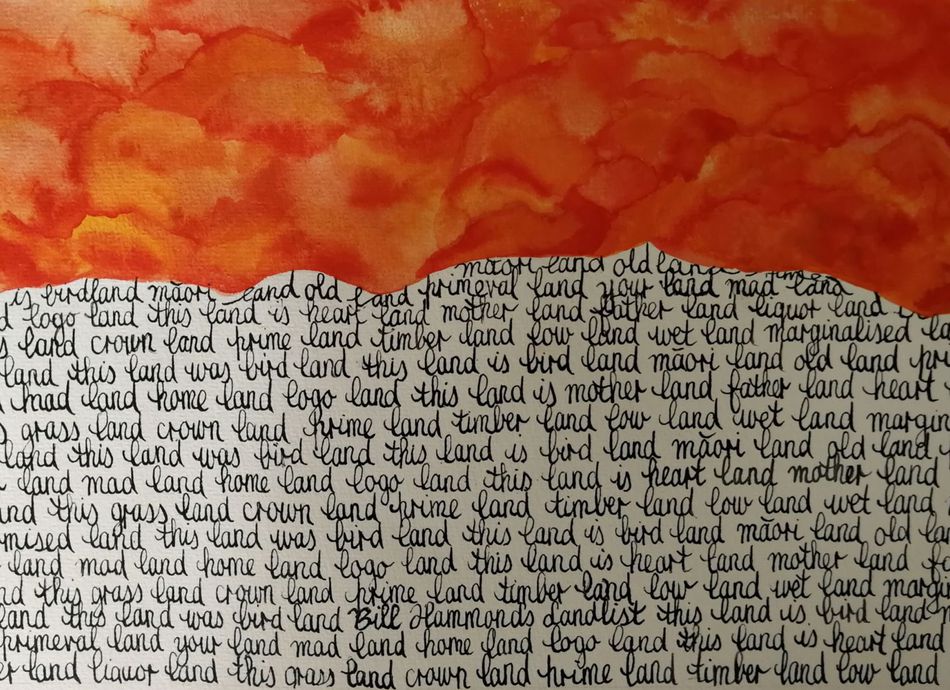 māori land old land
is birdland māori land old land primeval land your land mad land
logo land this land is heart land mother land father land liquor land
land crown land prime land timber land low land wet land marginalised
land this land was bird land this land is bird land māori land old land
mad land home land logo land this land is mother land father land heart
grass land crown land prime land timber land low land wet land margin
land this land was bird land this land is bird land māori land old land
land mad land home land logo land this land is heart land mother land
and this grass land crown land prime land timber land low land wet land
mised land this land was bird land this land is bird land māori land old la
land mad land home land logo land this land is heart land mother land fa
nd this grass land crown land prime land timber land low land wet land marg
land this land was bird land Bill Hammonds Landlist this land is bird land
primeval land your land mad land home land logo land this land is heart land
er land liquor land this grass land crown land prime land timber land low land